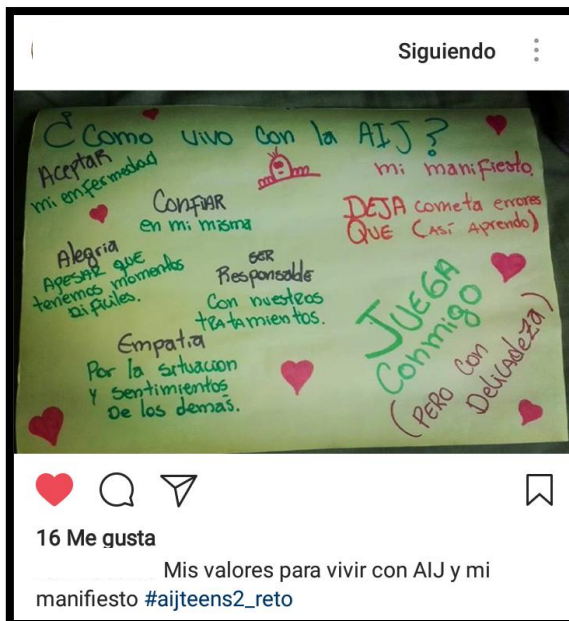 Siguiendo
¿Como vivo con la AIJ?
Aceptar
mi enfermedad
mi manifiesto
ConFiAR
en mi misma
DEJA cometa errores
QUE (ASí Aprendo)
Alegria
APESAR QUE
tenemos momentos
Dificiles.
SER
Responsable
Con nuestros
tRAtamientos.
Empatia
Por la situacion
y sentimientos
De los demás.
JUEGA
Conmigo
(PERO con
Delicadeza)
16 Me gusta
Mis valores para vivir con AIJ y mi
manifiesto #aijteens2_reto